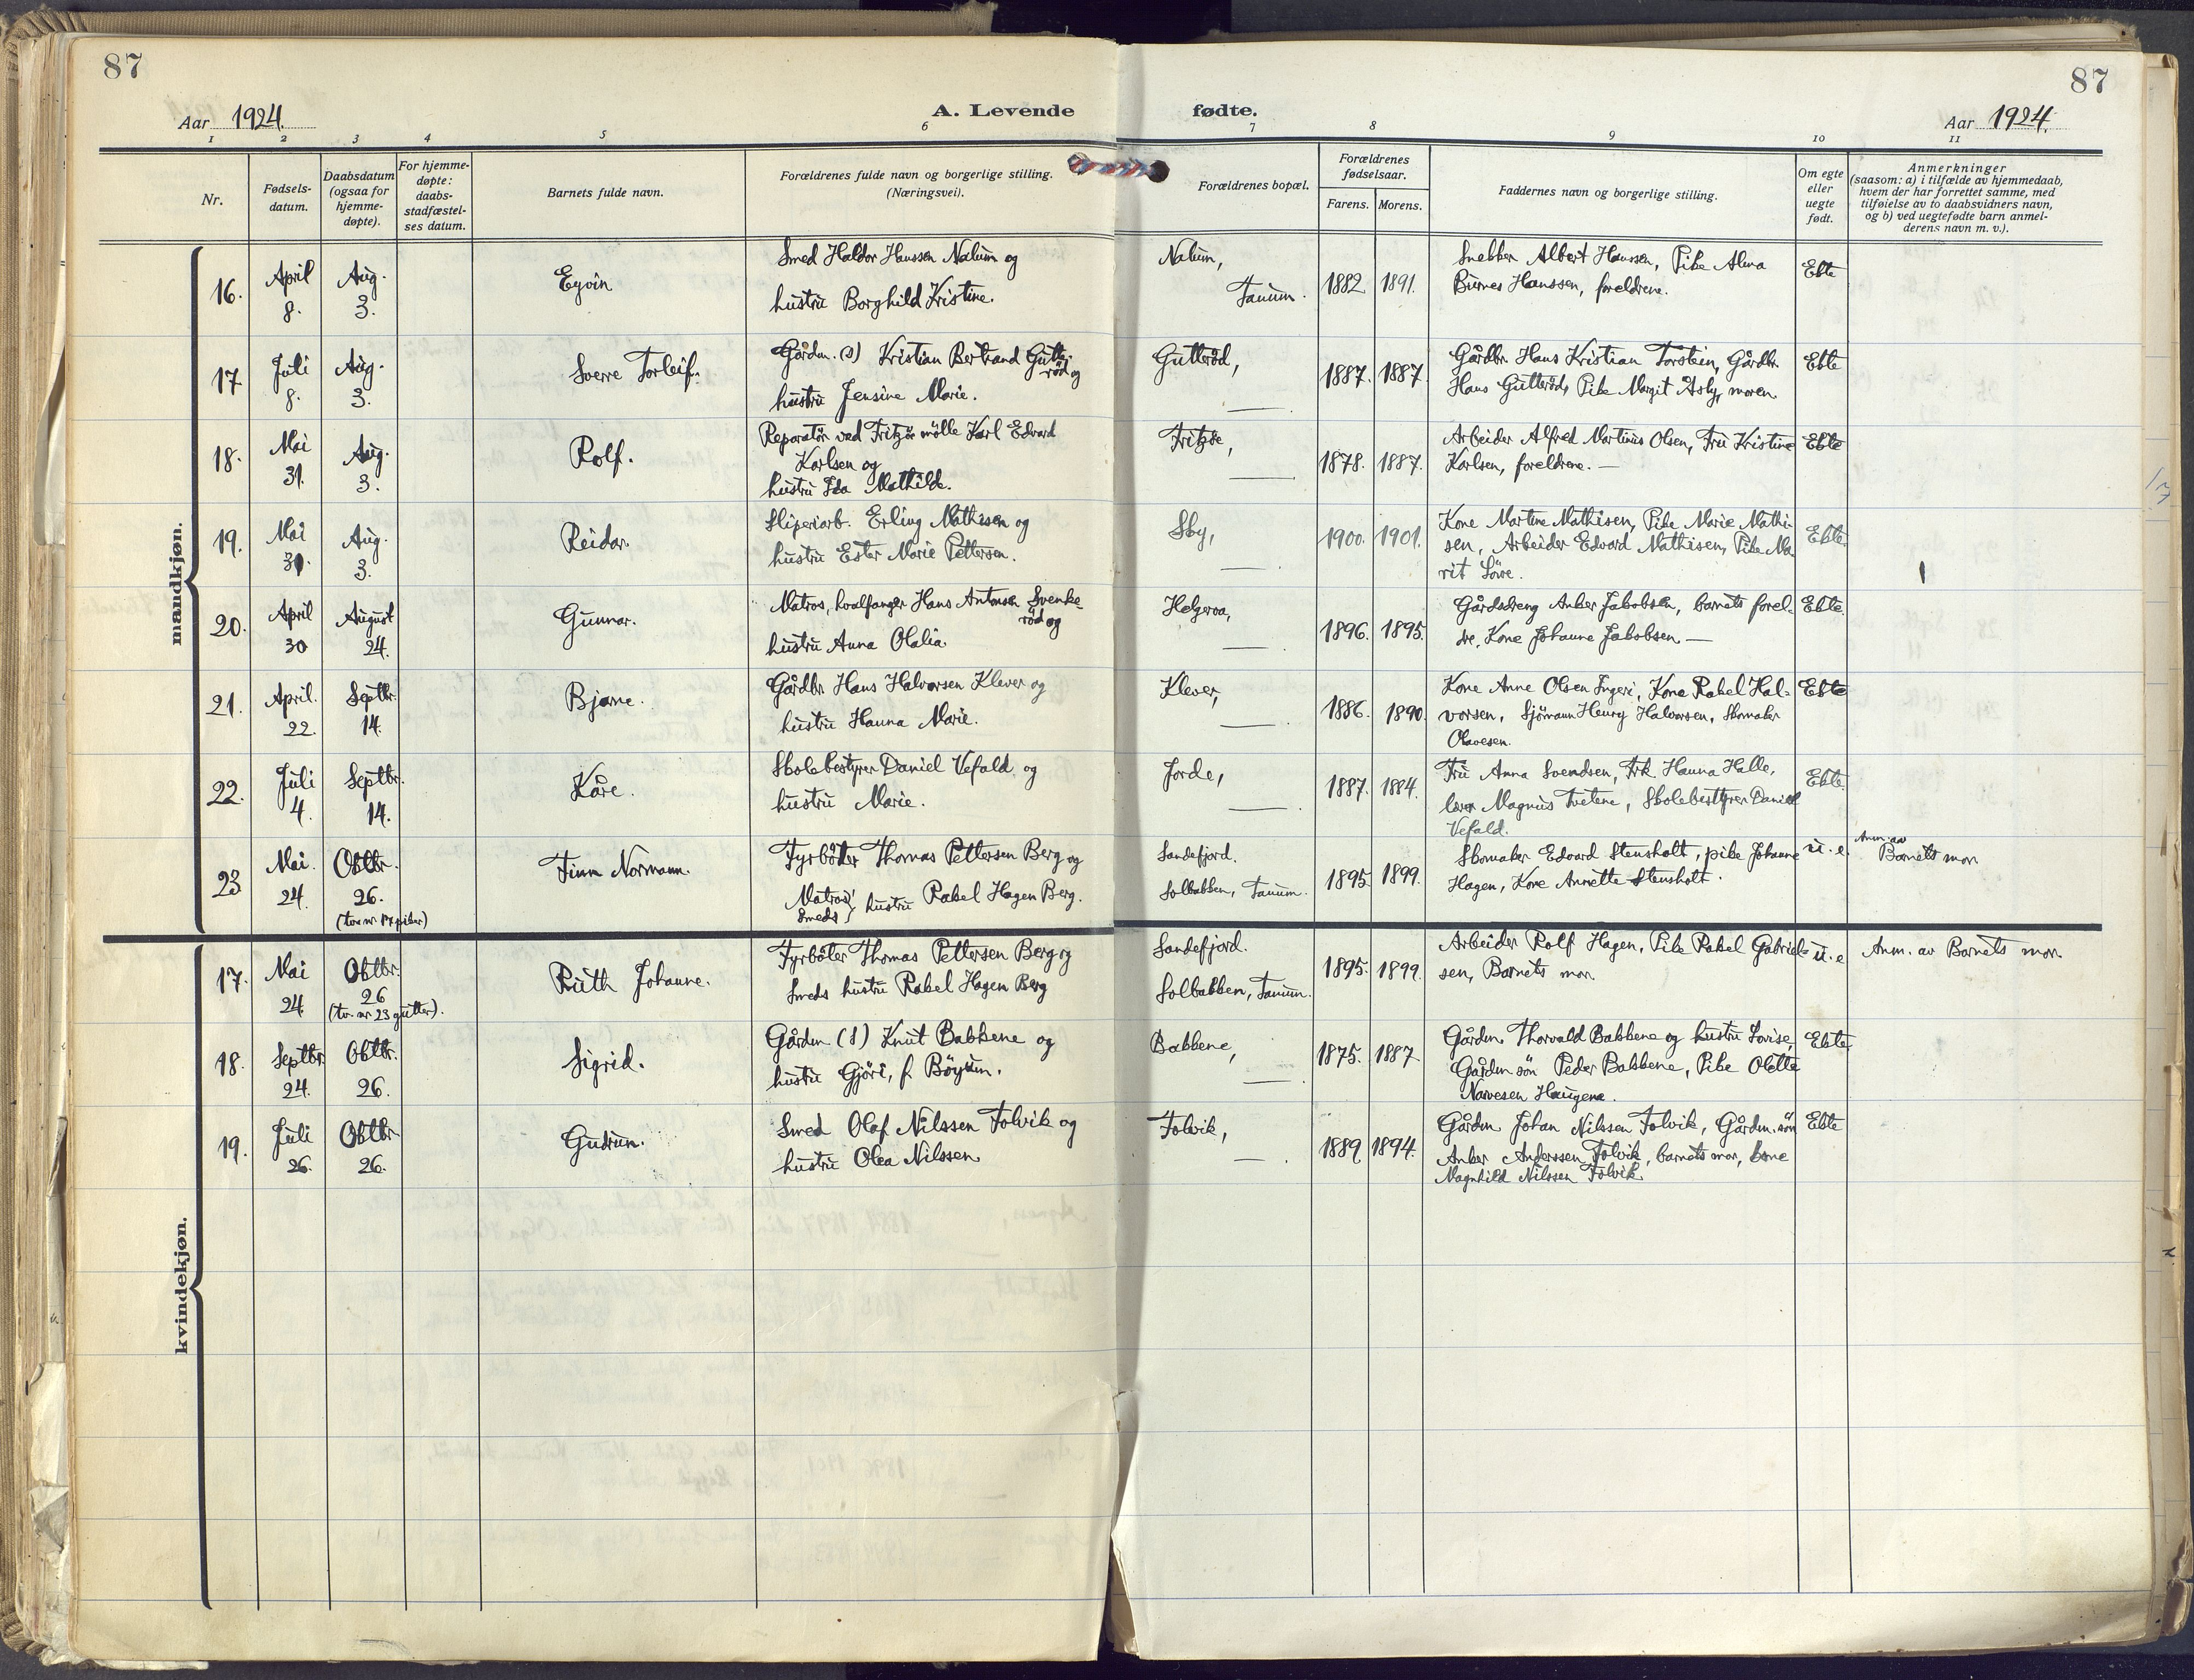 87
87
Aar 1924.
A. Levende fødte.
Aar 1924.
1 2 3 4 5 6 7 8 9 10 11
Nr.
Fødsels-
datum.
Daabsdatum
(ogsaa for
hjemme-
døpte).
For hjemme-
døpte:
daabs-
stadfæstel-
ses datum.
Barnets fulde navn.
Forældrenes fulde navn og borgerlige stilling.
(Næringsvei).
Forældrenes bopæl.
Forældrenes
fødselsaar.
Farens. Morens.
Faddernes navn og borgerlige stilling.
Om egte
eller
uegte
født.
Anmerkninger
(saasom: a) i tilfælde av hjemmedaab,
hvem der har forrettet samme, med
tilføielse av to daabsvidners navn,
og b) ved uegtefødte barn anmel-
derens navn m. v.).
mandkjøn.
16.
April
8.
Aug.
3.
Eyvin
Smed Haldor Hanssen Nalum og
hustru Borghild Kristine.
Nalum,
Tanum.
1882 1891.
Snekker Albert Hanssen, Pike Alma
Hanssen, foreldrene.
Ekte
17
Juli
8.
Aug.
3.
Sverre Torleif.
Gårdm. (s) Kristian Bertrand Gutte-
rød og
hustru Jensine Marie.
Gutterød,
1887. 1887.
Gårdbr. Hans Kristian Torstein, Gårdbr
Hans Gutterød, Pike Margit Åsly, moren.
Ekte
18.
Mai
31.
Aug.
3.
Rolf.
Reparatör ved Fritzöe mölle Karl Edvard
Karlsen og
hustru Ida Mathilde.
Fritzöe,
1878. 1887.
Arbeider Alfred Martinus Olsen, Fru Kristine
Karlsen, foreldrene. —
Ekte
19.
Mai
Aug.
3.
Reidar.
Sliperiarb. Erling Mathisen og
hustru Ester Marie Pettersen.
Sky,
1900. 1901.
Kone Martine Mathisen, Pike Marie Mathi-
sen, Arbeider Edvard Mathisen, Pike Ma
rit
Ekte.
20.
April
30
August
24.
Gunnar.
Matros, hvalfanger Hans Antonsen Svenke-
rød og
hustru Anna Olalia.
Helgeroa,
1896. 1895.
Gårdsdreng Anker Jakobsen, barnets forel-
dre, Kone Johanne Jakobsen —
Ekte.
21.
April.
22.
Septbr.
14.
Bjarne.
Gårdbr Hans Halvorsen Klever og
hustru Hanna Marie.
Klever,
1886. 1890.
Kone Anne Olsen Ingeri, Kone Rakel Hal-
vorsen, Sjömann Henry Halvorsen, Skomaker
Olavesen.
Ekte
22.
Juli
4.
Septbr.
14.
Kåre.
Skolebestyrer Daniel Vefald og
hustru Marie.
Jorde,
1887. 1884.
Fru Anna Svendsen, Frk Hanna Halle,
lærer Magnus Tvetene, Skolebestyrer Daniel
Vefald.
Ekte.
23
Mai.
24.
Oktbr.
26.
(tv. nr. 17 piker)
Finn Normann.
Fyrböter Thomas Pettersen Berg og
Matros
Smeds hustru Rakel Hagen Berg.
Sandefjord.
Solbakken, Tanum.
1895 1899.
Skomaker Edvard Stensholt, pike Johanne
Hagen, Kone Annette Stensholt.
u. e.
Anm. av
Barnets mor
kvindekjøn.
17.
Mai
24.
Oktbr.
26
(tv. nr 23 gutter).
Ruth Johanne.
Fyrböter Thomas Pettersen Berg og
Smeds hustru Rakel Hagen Berg
Sandefjord.
Solbakken, Tanum.
1895. 1899.
Arbeider Rolf Hagen, Pike Rakel Gabriel-
sen, Barnets mor.
u. e
Anm. av Barnets mor.
18.
Septbr.
24.
Oktbr.
26.
Sigrid.
Gårdm (S) Knut Bakkene og
hustru Gjöri, f. Böyum.
Bakkene,
1875. 1887
Gårdm. Thorvald Bakkene og hustru Lovise,
Gårdm sön Peder Bakkene, Pike Olette
Narvesen Haugene.
Ekte
19.
Juli
26.
Oktbr.
26.
Gudrun.
Smed Olaf Nilssen Folvik og
hustru Olea Nilssen
Folvik,
1889 1894.
Gårdm Johan Nilssen Folvik, Gårdm. sön
Anker Anderssen Folvik, barnets mor, kone
Magnhild Nilssen Folvik
Ekte